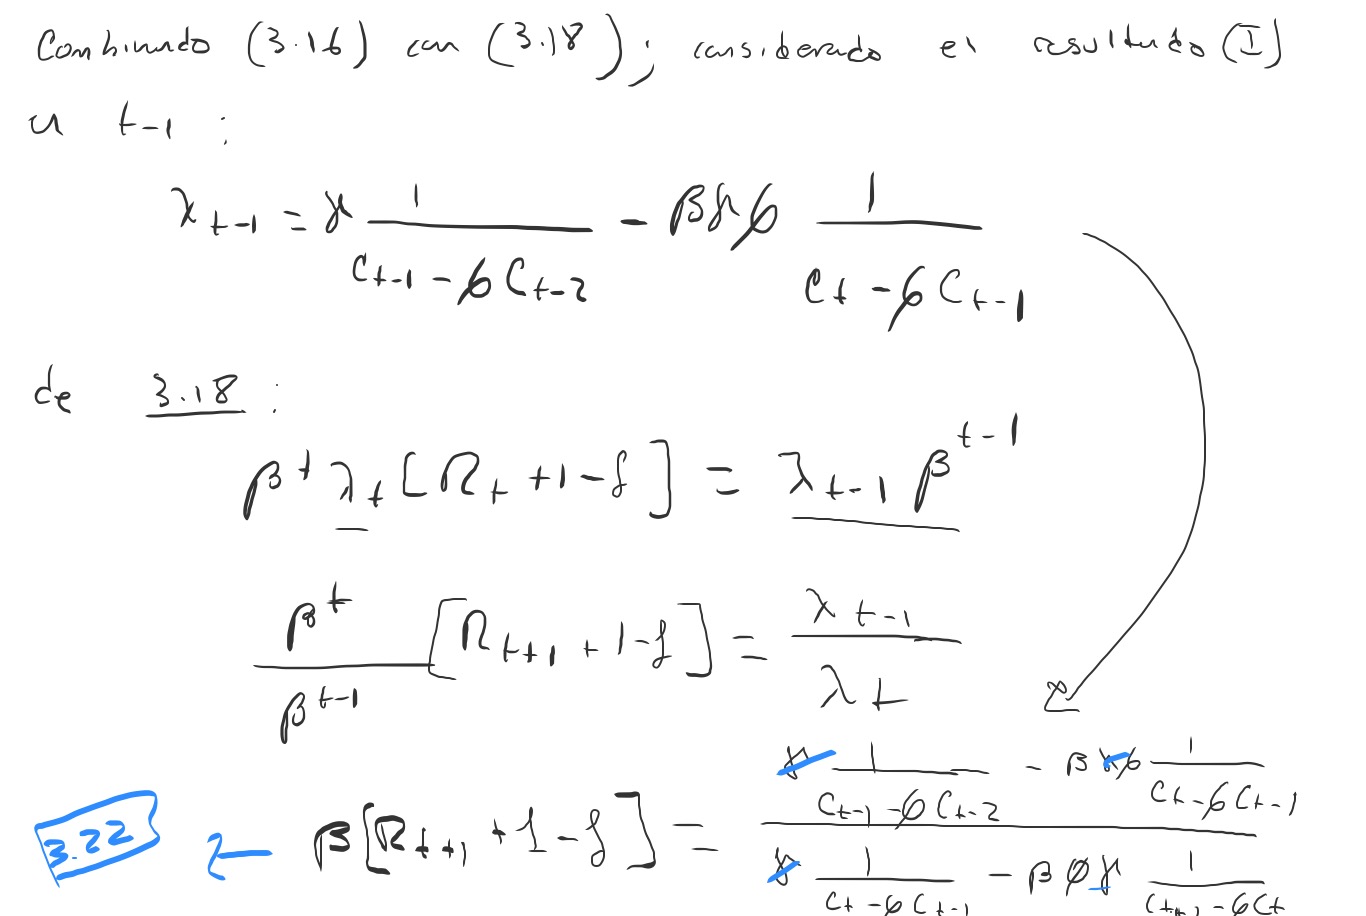 Combinando (3.16) con (3.18); considerado el resultado (I)
a t-1 :
λ_{t-1} = γ \frac{1}{C_{t-1} - ϕ C_{t-2}} - βγϕ \frac{1}{C_t - ϕ C_{t-1}}
de 3.18 :
β^t λ_t [R_t + 1 - δ] = λ_{t-1} β^{t-1}
\frac{β^t}{β^{t-1}} [R_{t+1} + 1 - δ] = \frac{λ_{t-1}}{λ_t}
3.22 ← β[R_{t+1} + 1 - δ] = \frac{γ \frac{1}{C_{t-1} - ϕ C_{t-2}} - βγϕ \frac{1}{C_t - ϕ C_{t-1}}}{γ \frac{1}{C_t - ϕ C_{t-1}} - βϕγ \frac{1}{C_{t+1} - ϕ C_t}}